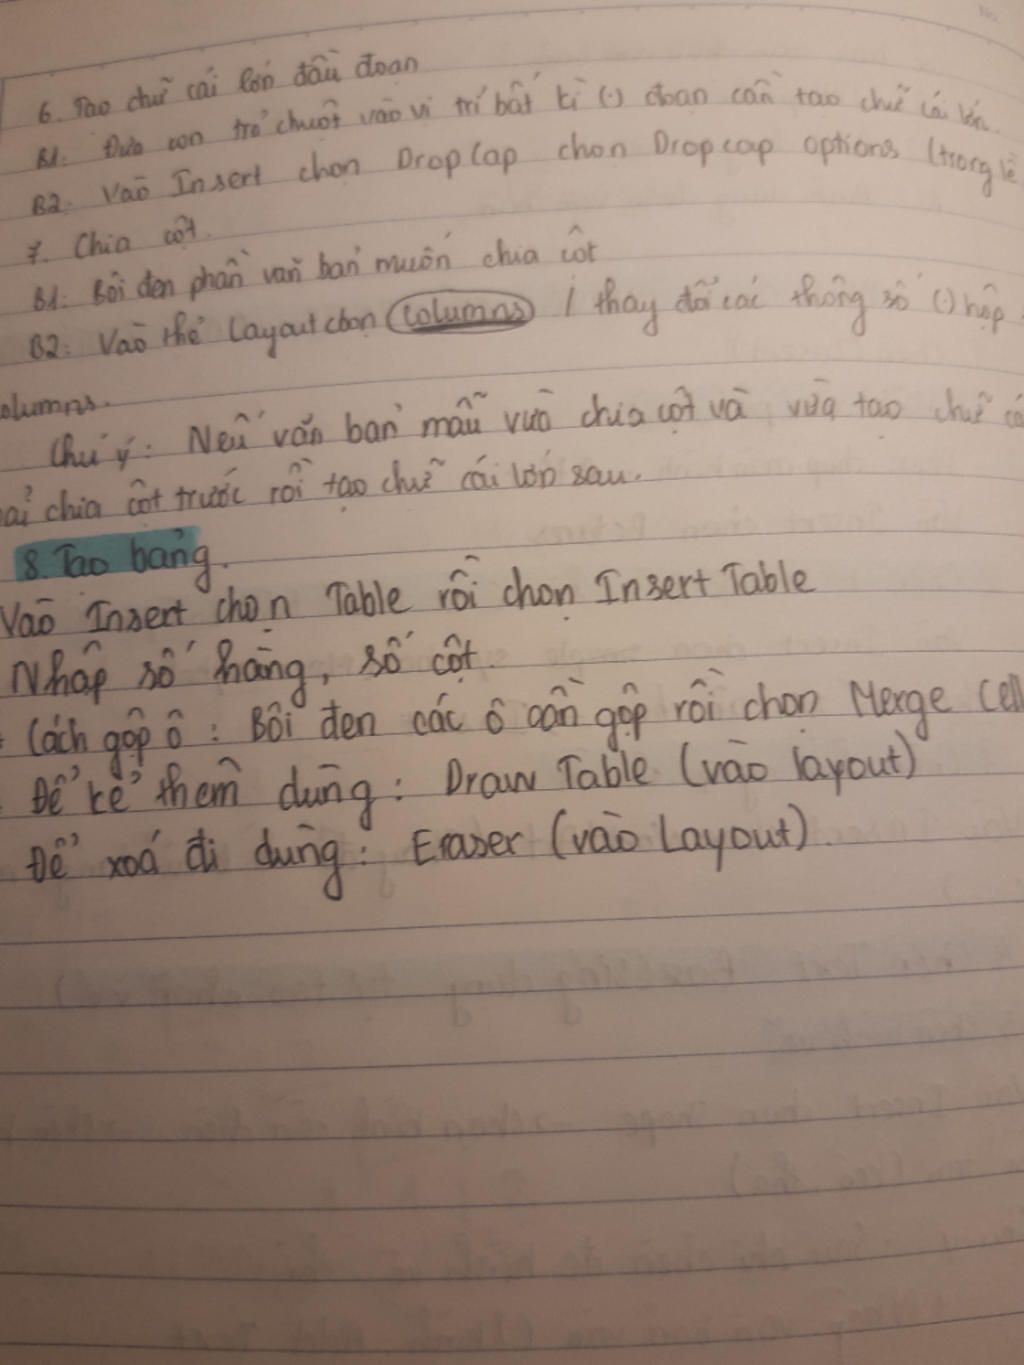 6. Tạo chữ cái lớn đầu đoạn
B1: Đưa con trỏ chuột vào vị trí bất kì (.) đoạn cần tạo chữ cái lớn.
B2: Vào Insert chọn Drop Cap chọn Dropcap options (trong lề
7. Chia cột.
B1: Bôi đen phần văn bản muốn chia cột
B2: Vào thẻ Layout chọn columns / thay đổi các thông số (.) hộp
olumns.
Chú ý: Nếu văn bản mẫu vừa chia cột và vừa tạo chữ cá
ải chia cột trước rồi tạo chữ cái lớn sau.
8. Tạo bảng.
Vào Insert chọn Table rồi chọn Insert Table
Nhập số hàng, số cột
Cách gộp ô : Bôi đen các ô cần gộp rồi chọn Merge Cell
Để kẻ thêm dùng : Draw Table (vào layout)
Để xoá đi dùng : Eraser (vào Layout).